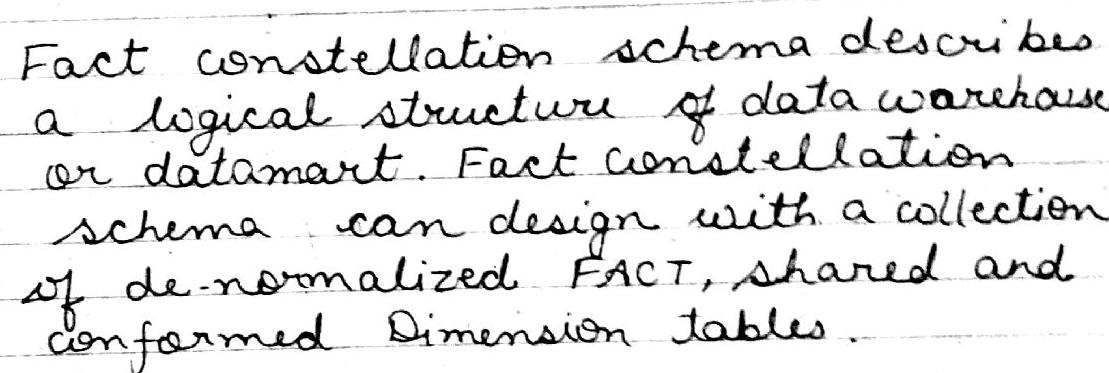 Fact constellation schema describes
a logical structure of data warehouse
or datamart. Fact constellation
schema can design with a collection
of de-normalized FACT, shared and
conformed Dimension tables.